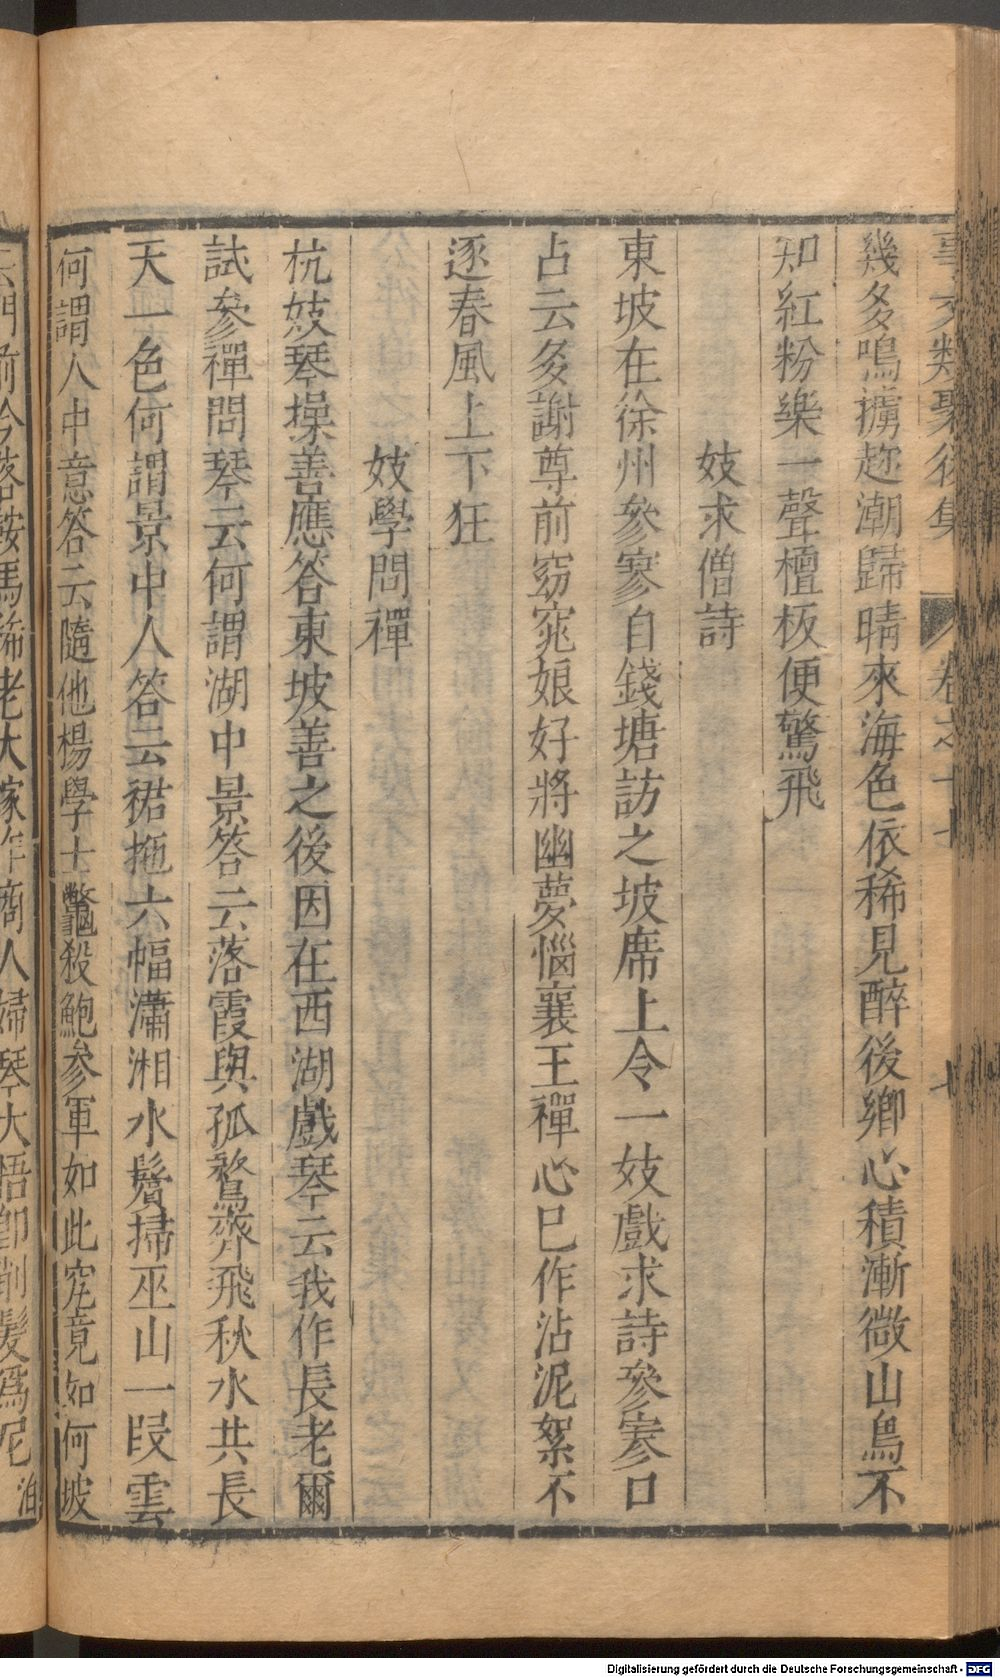 事文類聚後集 卷之十七 七
幾多鳴擄趂潮歸晴來海色依稀見醉後鄉心積漸微山鳥不
知紅粉樂一聲檀板便驚飛
妓求僧詩
東坡在徐州參寥自錢塘訪之坡席上令一妓戲求詩參寥口
占云多謝尊前窈窕娘好將幽夢惱襄王禪心已作沾泥絮不
逐春風上下狂
妓學問禪
杭妓琴操善應答東坡善之後因在西湖戲琴云我作長老爾
試參禪問琴云何謂湖中景答云落霞與孤鶩齊飛秋水共長
天一色何謂景中人答云裙拖六幅瀟湘水鬢掃巫山一段雲
何謂人中意答云隨他楊學士鼈殺鮑參軍如此究竟如何坡
云門前冷落鞍馬稀老大嫁作商人婦琴大悟即削髮爲尼
Digitalisierung gefördert durch die Deutsche Forschungsgemeinschaft - DFG